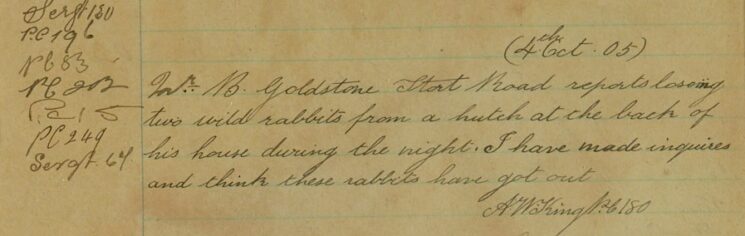 Sergt 180
PC 196
PC 83
PC 202
PC 15
PC 249
Sergt 64
(4th Oct. 05)
Mr. B. Goldstone Stort Road reports loseing
two wild rabbits from a hutch at the back of
his house during the night. I have made inquires
and think these rabbits have got out
A.W. King Pc 180